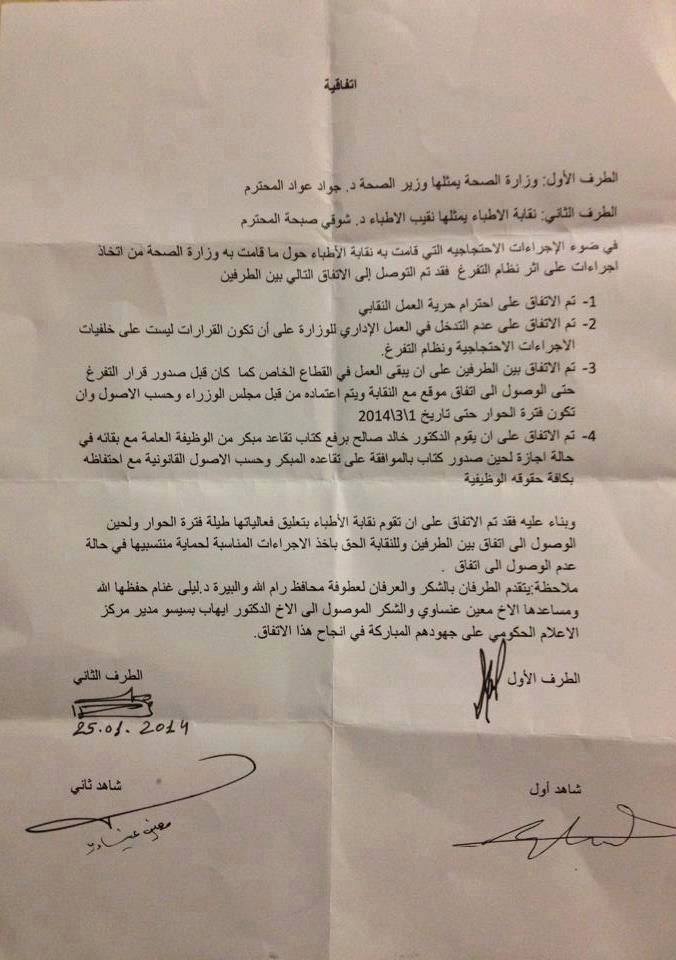 اتفاقية
الطرف الأول: وزارة الصحة يمثلها وزير الصحة د. جواد عواد المحترم
الطرف الثاني: نقابة الاطباء يمثلها نقيب الاطباء د. شوقي صبحة المحترم
في ضوء الإجراءات الاحتجاجيه التي قامت به نقابة الأطباء حول ما قامت به وزارة الصحة من اتخاذ
اجراءات على اثر نظام التفرغ فقد تم التوصل إلى الاتفاق التالي بين الطرفين
1- تم الاتفاق على احترام حرية العمل النقابي
2- تم الاتفاق على عدم التدخل في العمل الإداري للوزارة على أن تكون القرارات ليست على خلفيات
الاجراءات الاحتجاجية ونظام التفرغ.
3- تم الاتفاق بين الطرفين على ان يبقى العمل في القطاع الخاص كما كان قبل صدور قرار التفرغ
حتى الوصول الى اتفاق موقع مع النقابة ويتم اعتماده من قبل مجلس الوزراء وحسب الاصول وان
تكون فترة الحوار حتى تاريخ 1\3\2014
4- تم الاتفاق على ان يقوم الدكتور خالد صالح برفع كتاب تقاعد مبكر من الوظيفة العامة مع بقائه في
حالة اجازة لحين صدور كتاب بالموافقة على تقاعده المبكر وحسب الاصول القانونية مع احتفاظه
بكافة حقوقه الوظيفية
وبناء عليه فقد تم الاتفاق على ان تقوم نقابة الأطباء بتعليق فعالياتها طيلة فترة الحوار ولحين
الوصول الى اتفاق بين الطرفين وللنقابة الحق باخذ الاجراءات المناسبة لحماية منتسبيها في حالة
عدم الوصول الى اتفاق .
ملاحظة:يتقدم الطرفان بالشكر والعرفان لعطوفة محافظ رام الله والبيرة د.ليلى غنام حفظها الله
ومساعدها الاخ معين عنساوي والشكر الموصول الى الاخ الدكتور ايهاب بسيسو مدير مركز
الاعلام الحكومي على جهودهم المباركة في انجاح هذا الاتفاق.
الطرف الأول
الطرف الثاني
25.01.2014
شاهد أول
شاهد ثاني